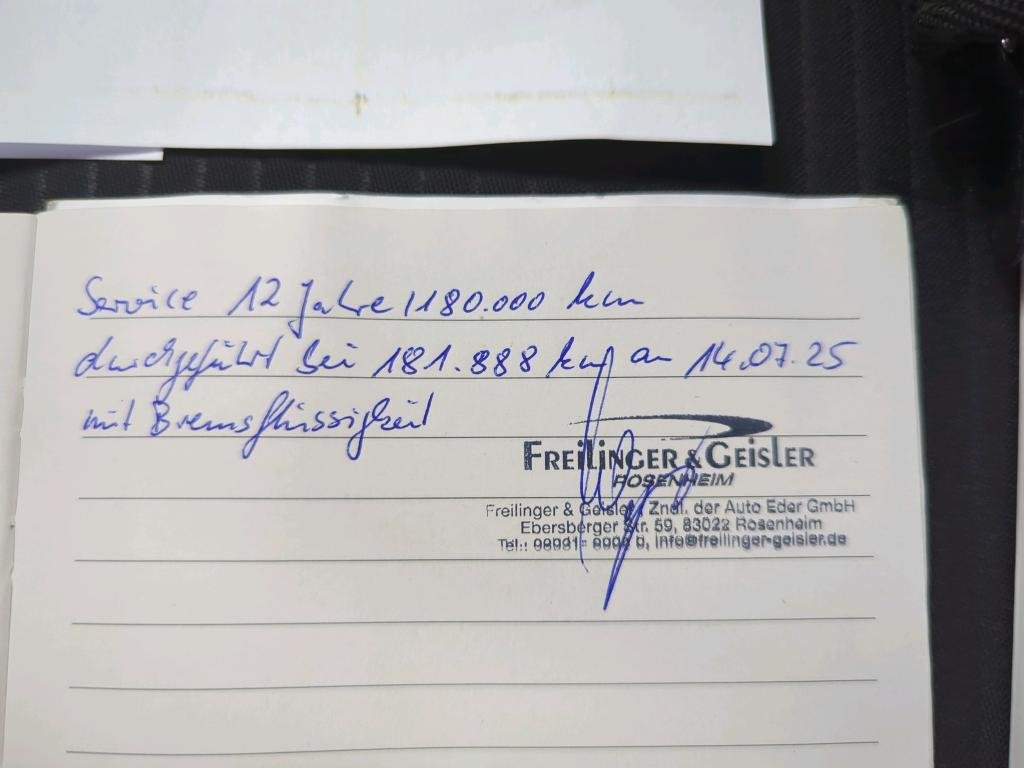 Service 12 Jahre / 180.000 km
durchgeführt bei 181.888 km am 14.07.25
mit Bremsflüssigkeit
FREILINGER & GEISLER
ROSENHEIM
Freilinger & Geisler, Zndl. der Auto Eder GmbH
Ebersberger Str. 59, 83022 Rosenheim
Tel.: info@freilinger-geisler.de